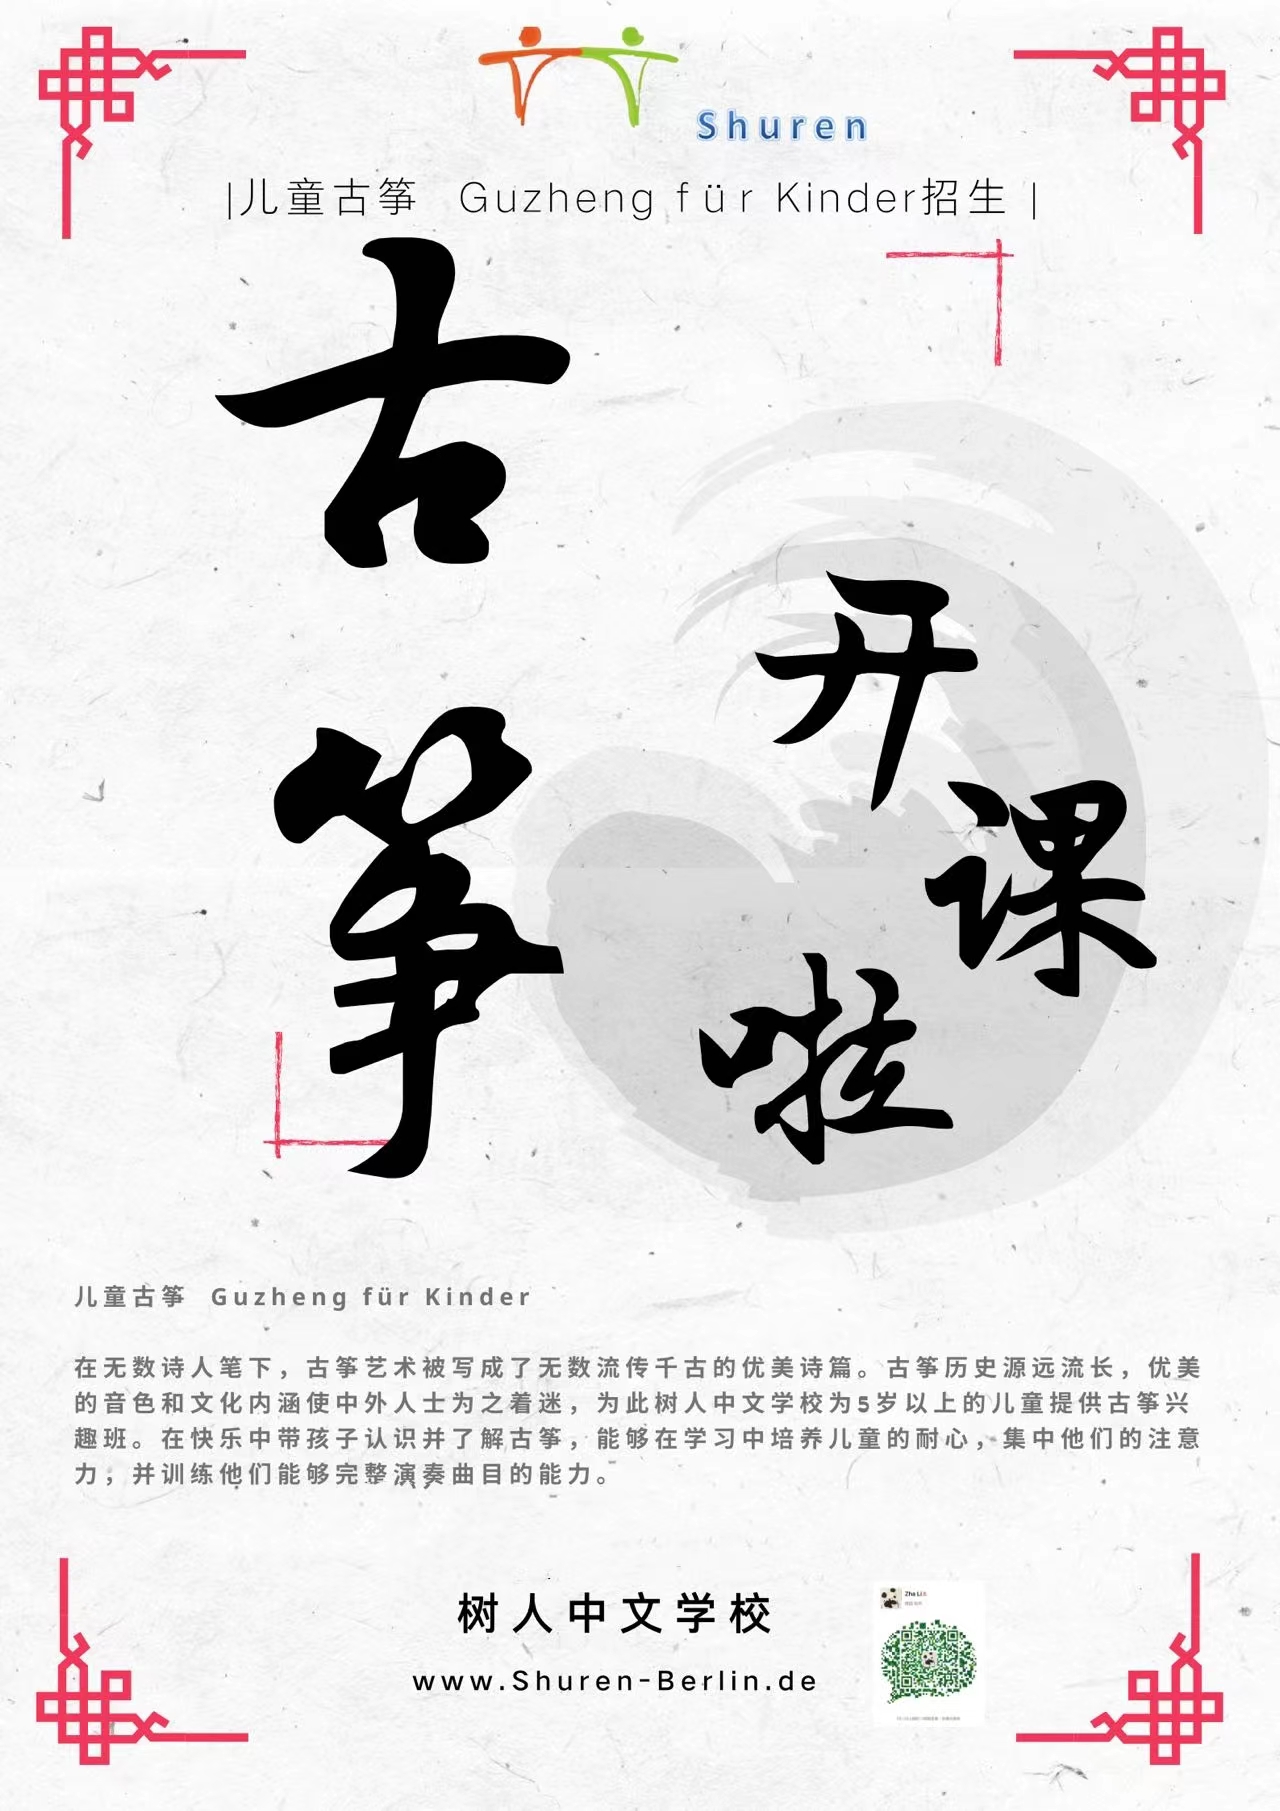 Shuren
|儿童古筝 Guzheng für Kinder招生 |
古筝
开课啦
儿童古筝 Guzheng für Kinder
在无数诗人笔下，古筝艺术被写成了无数流传千古的优美诗篇。古筝历史源远流长，优美
的音色和文化内涵使中外人士为之着迷，为此树人中文学校为5岁以上的儿童提供古筝兴
趣班。在快乐中带孩子认识并了解古筝，能够在学习中培养儿童的耐心，集中他们的注意
力，并训练他们能够完整演奏曲目的能力。
树人中文学校
www.Shuren-Berlin.de
Zha Li